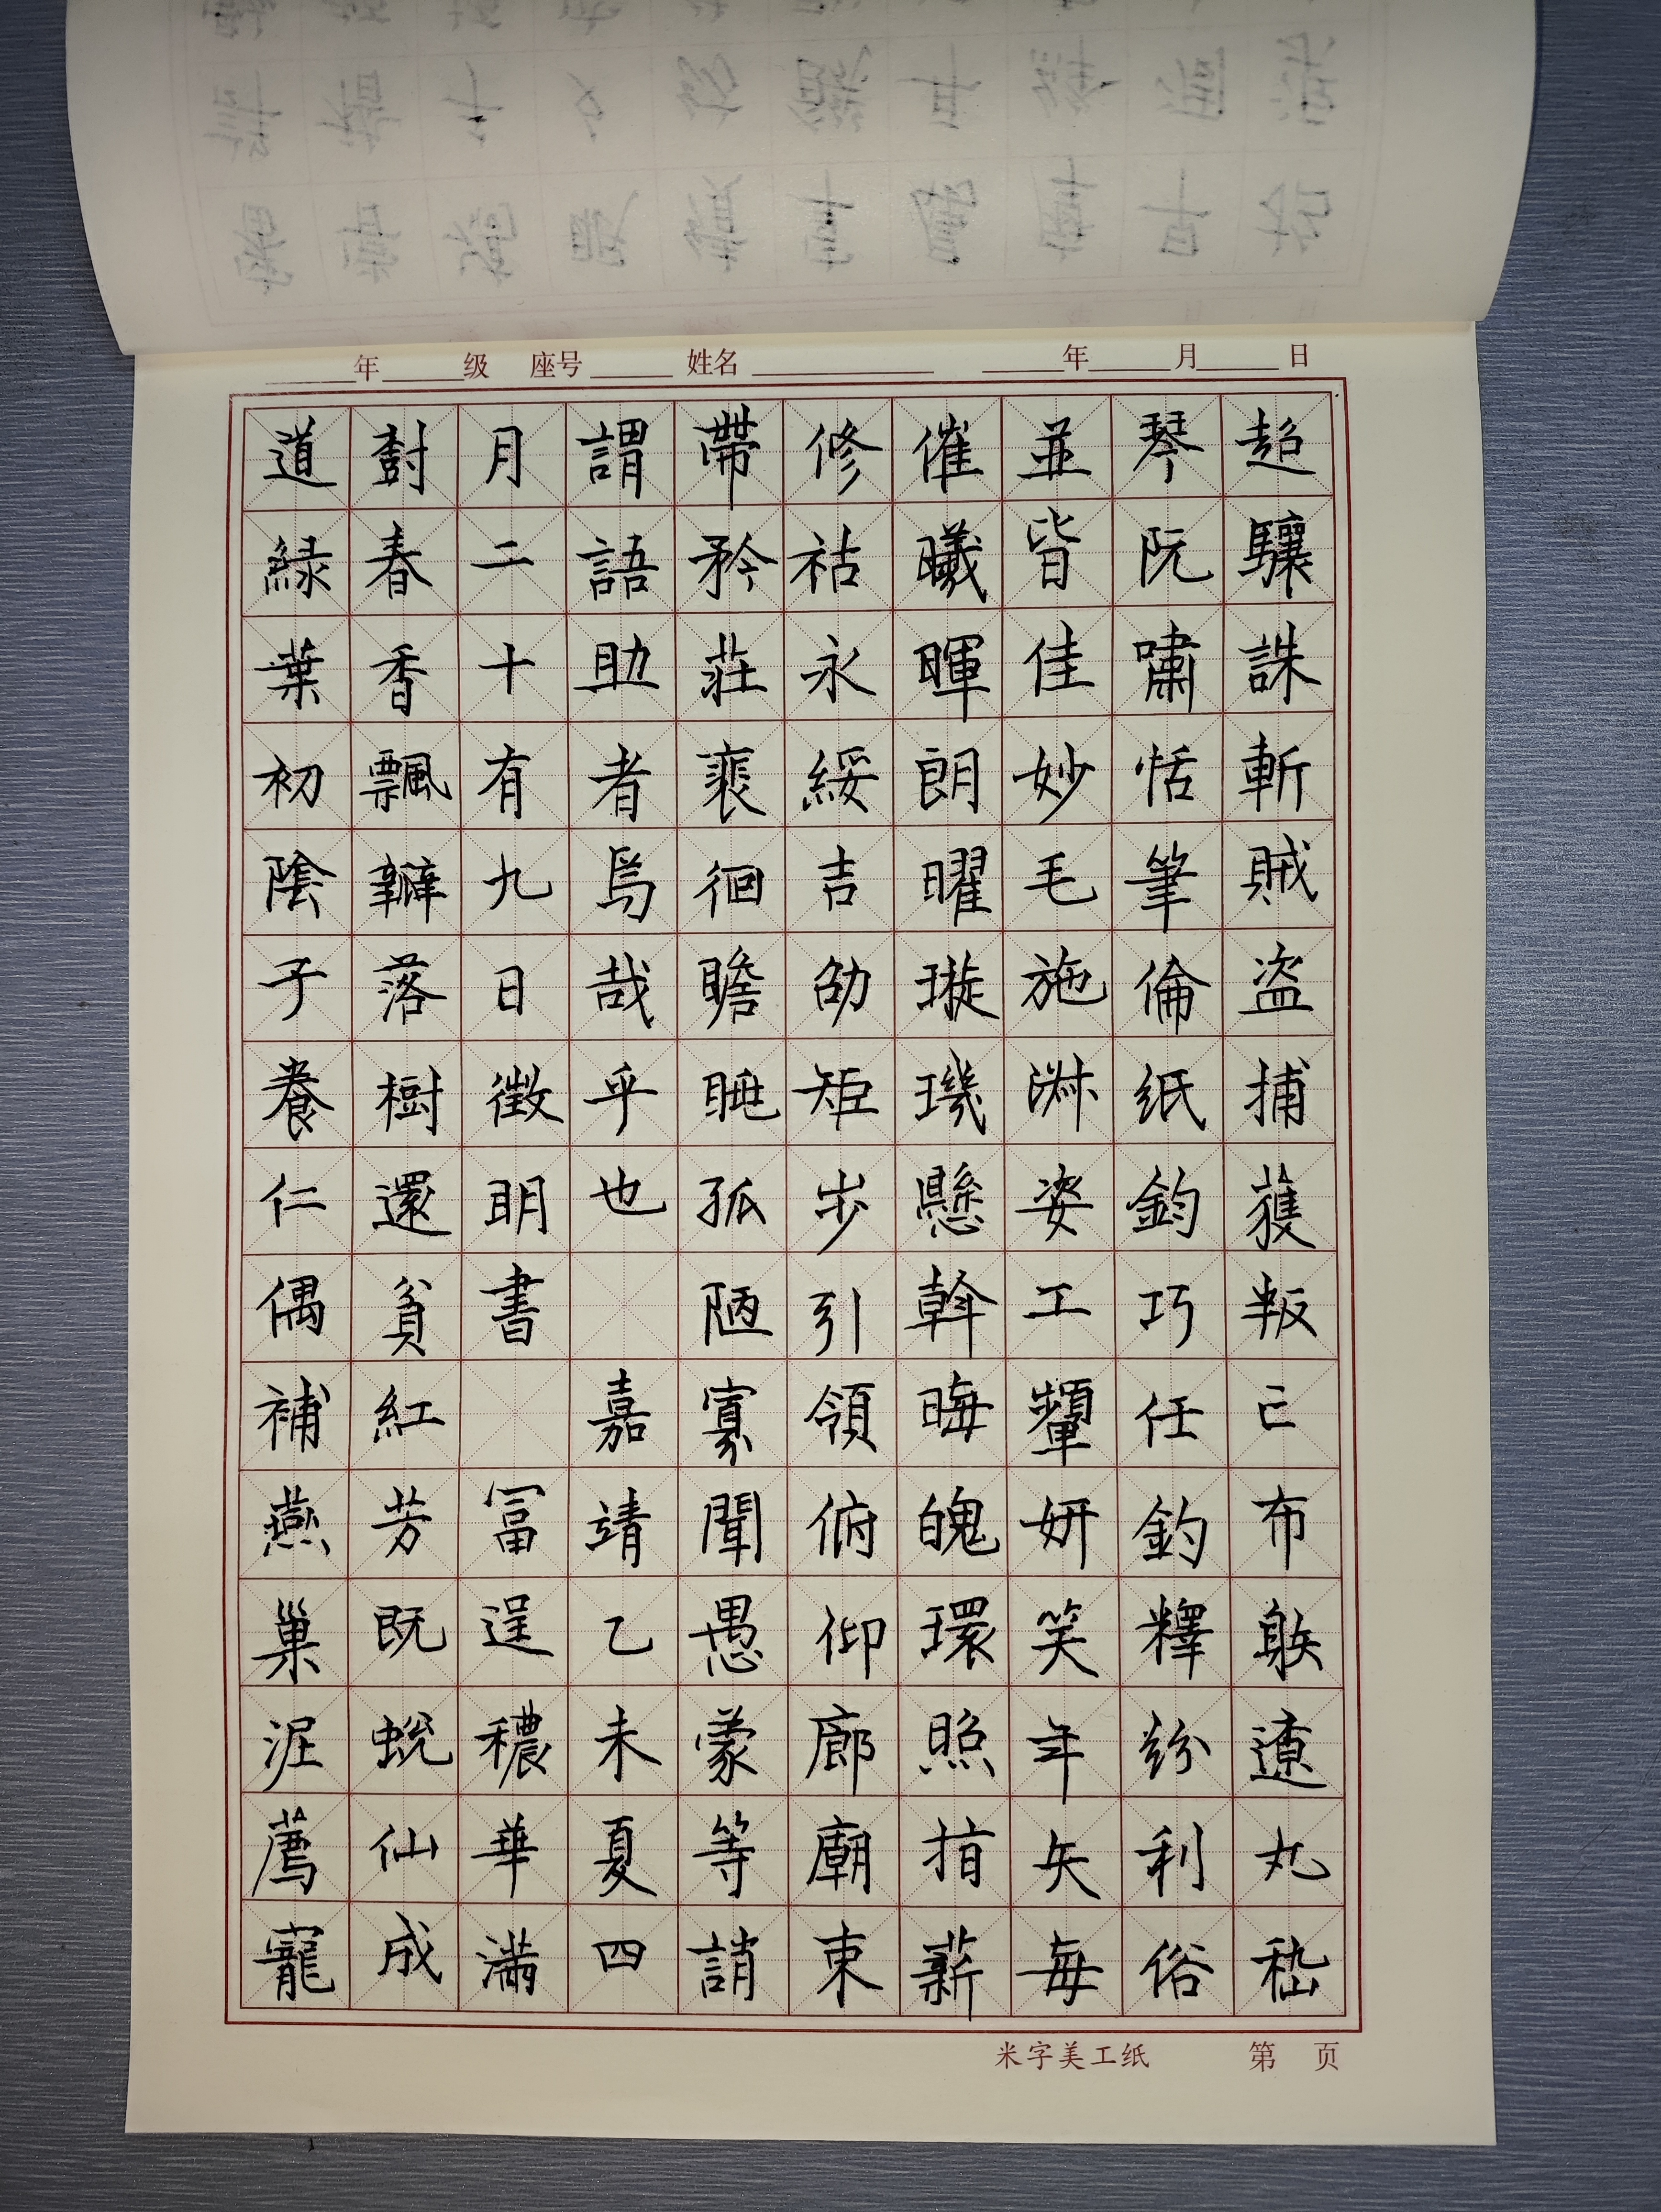 年 级 座号 姓名 年 月 日
超驤誅斬賊盗捕獲叛亡布射遼丸嵇
琴阮嘯恬筆倫紙鈞巧任釣釋紛利俗
並皆佳妙毛施淑姿工顰妍笑年矢每
催曦暉朗曜璇璣懸斡晦魄環照指薪
修祜永綏吉劭矩步引領俯仰廊廟束
帶矜莊裵徊瞻眺孤陋寡聞愚蒙等誚
謂語助者焉哉乎也 嘉靖乙未夏四
月二十有九日徵明書 冨逞穠華滿
樹春香飄瓣落樹還貧紅芳既蛻仙成
道緑葉初陰子養仁偶補燕巢泥薦寵
米字美工纸 第 页